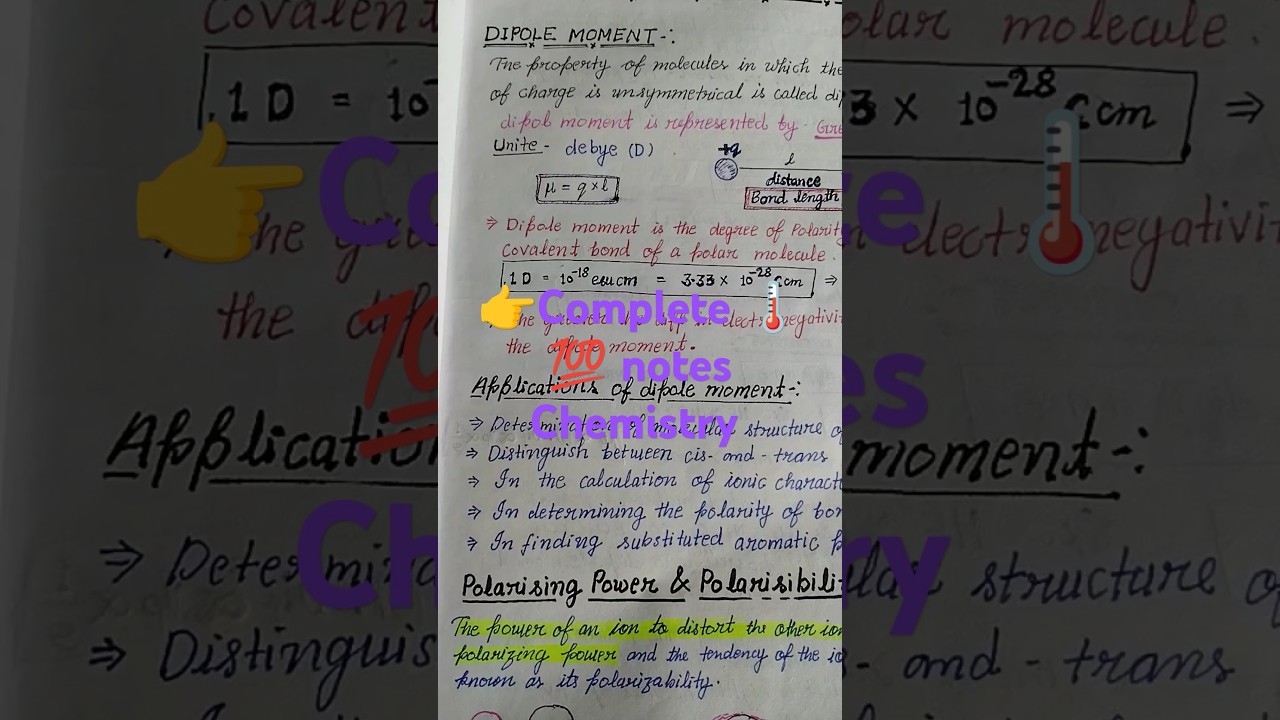 DIPOLE MOMENT-:
The property of molecules in which the
of charge is unsymmetrical is called dip
dipol moment is represented by - Gre
Unite - debye (D)
+q
l
distance
μ = q×l
Bond length
⇒ Dipole moment is the degree of Polarit
Covalent bond of a polar molecule.
1 D = 10⁻¹⁸ esu cm = 3.33 × 10⁻²⁸ C cm ⇒
👉Complete🌡️
the diff in electronegativi
the dipole moment.
💯 notes
Applications of dipole moment-:
Chemistry
⇒ Determination of molecular structure o
⇒ Distinguish between cis- and - trans
⇒ In the calculation of ionic charact
⇒ In determining the polarity of bon
⇒ In finding substituted aromatic
Polarising Power & Polarisibili
The power of an ion to distort the other ion
polarizing power and the tendency of the io
known as its polarizability.